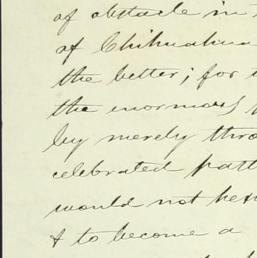 of obstacle in
of Chihuahua
the better; for
the enormous
by merely thro
celebrated patt
would not hes
& to become a